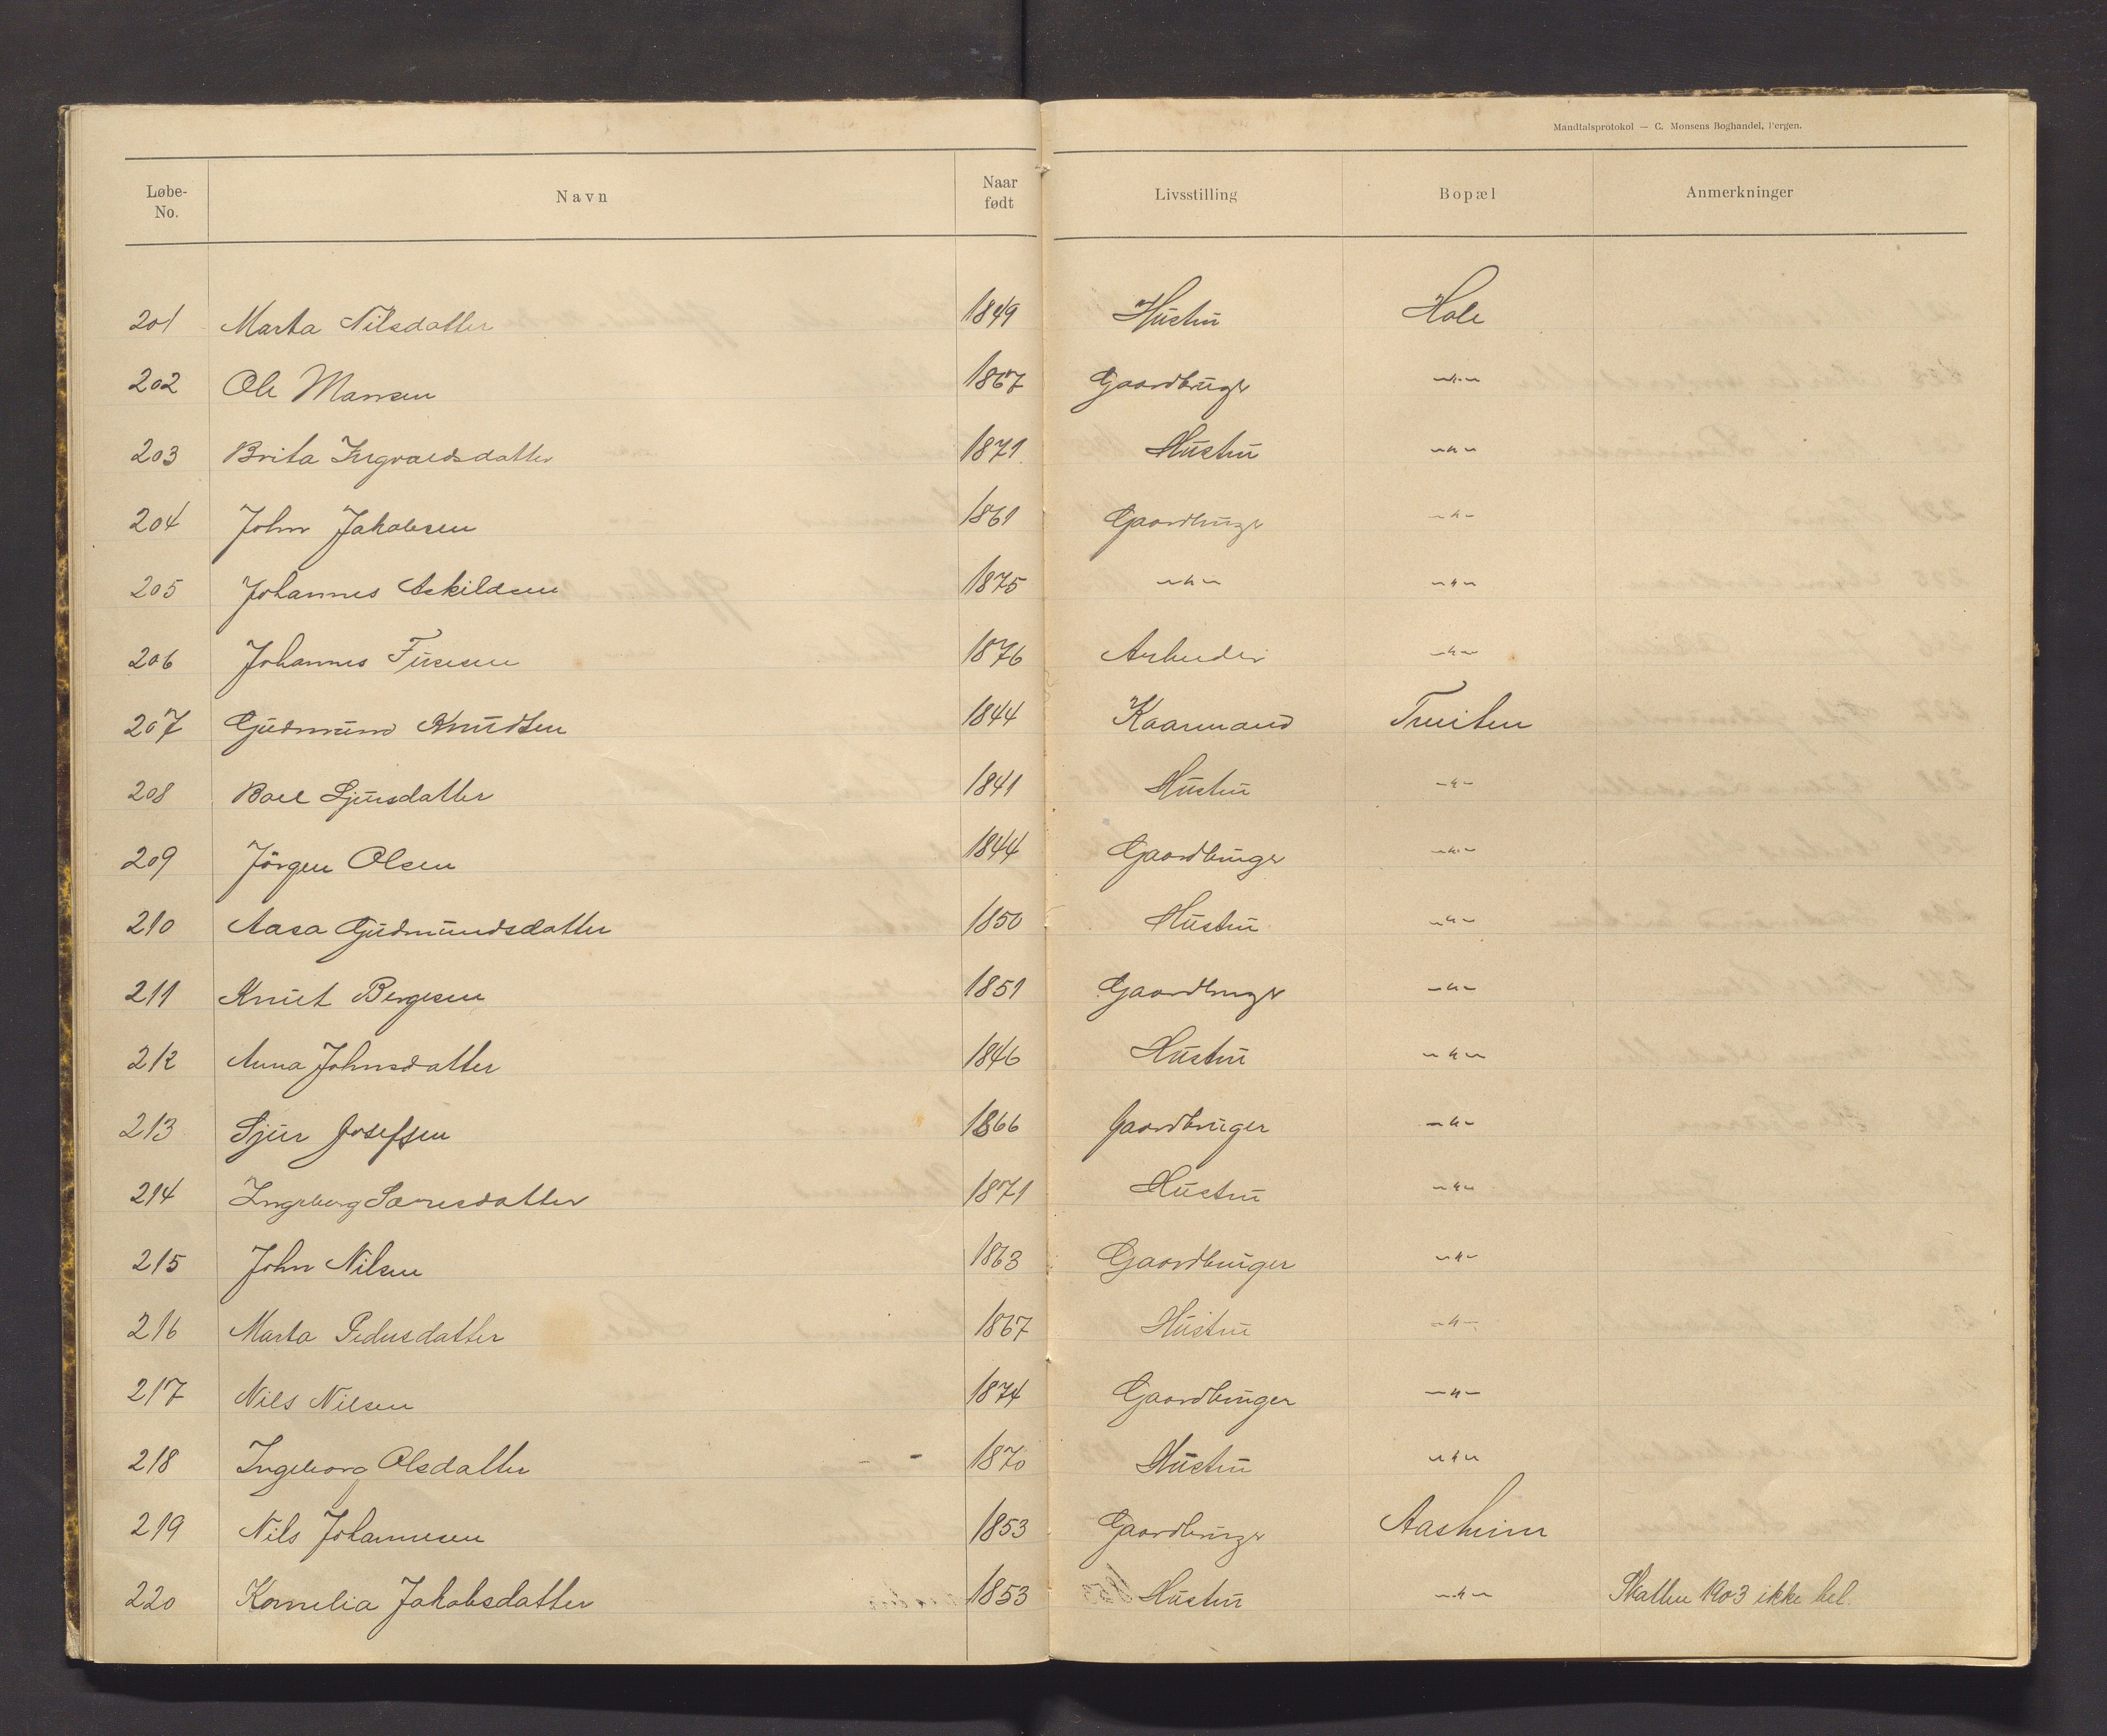 Mandtalsprotokol — C. Monsens Boghandel, Bergen.
Løbe-No. Navn Naar født Livsstilling Bopæl Anmerkninger
201 Marta Nilsdatter 1849 Hustru Hole
202 Ole Mansen 1867 Gaardbruger —"—
203 Brita Ingvaldsdatter 1871 Hustru —"—
204 John Jakobsen 1861 Gaardbruger —"—
205 Johannes Askildsen 1875 —"— —"—
206 Johannes 1876 Arbeider —"—
207 Gudmund Knudtsen 1844 Kaarmand Tveiten
208 Boel Sjursdatter 1841 Hustru —"—
209 Jörgen Olsen 1844 Gaardbruger —"—
210 Aasa Gudmundsdatter 1850 Hustru —"—
211 Knut Bergesen 1851 Gaardbruger —"—
212 Anna Johnsdatter 1846 Hustru —"—
213 Sjur Josefsen 1866 Gaardbruger —"—
214 Ingeborg Larsesdatter 1871 Hustru —"—
215 John Nilsen 1863 Gaardbruger —"—
216 Marta Pedersdatter 1867 Hustru —"—
217 Nils Nilsen 1874 Gaardbruger —"—
218 Ingeborg Olsdatter 1870 Hustru —"—
219 Nils Johannesen 1853 Gaardbruger Aasheim
220 Kornelia Jakobsdatter 1853 Hustru —"— Skatten 1903 ikke bet.